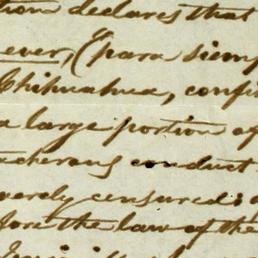 tion declares that
ever, (para siemp
Chihuahua, confi
a large portion of
acherous conduct
verely censured; a
fore the law of the